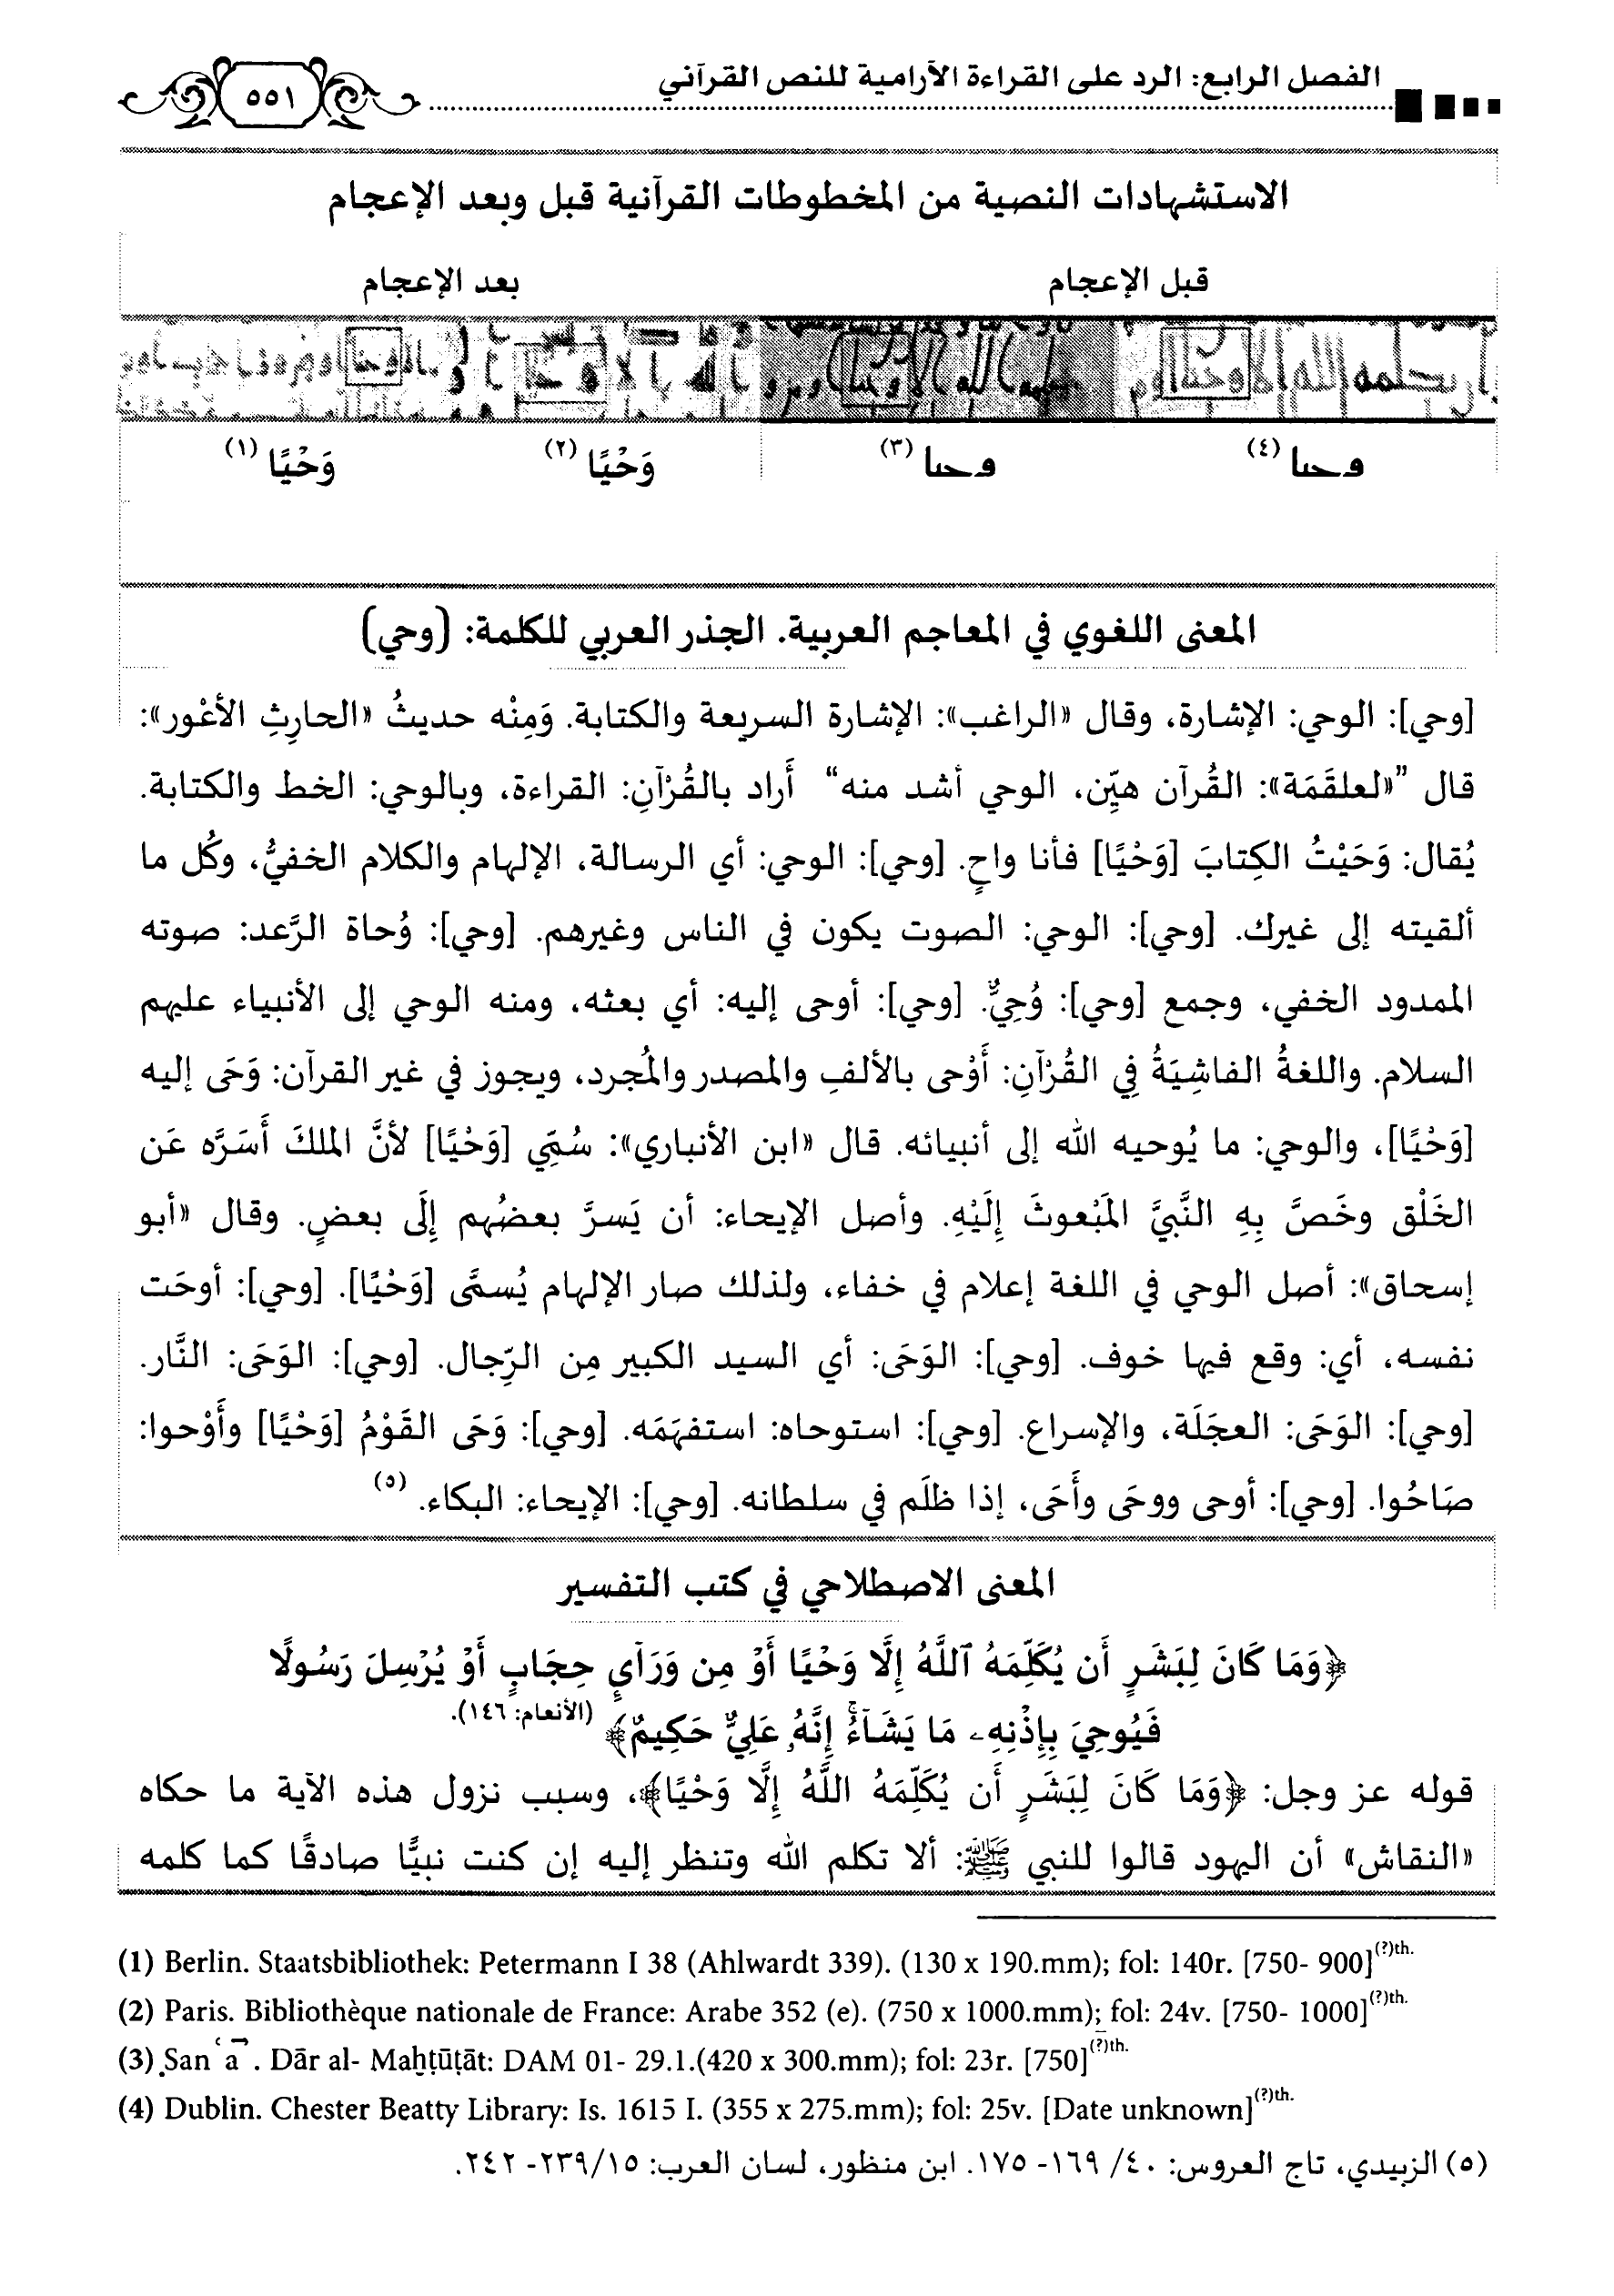 الفصل الرابع: الرد على القراءة الآرامية للنص القرآني
٥٥١
الاستشهادات النصية من المخطوطات القرآنية قبل وبعد الإعجام
قبل الإعجام بعد الإعجام
وحىا (٤) وحىا (٣) وَحْيًا (٢) وَحْيًا (١)
المعنى اللغوي في المعاجم العربية. الجذر العربي للكلمة: (وحي)
[وحي]: الوحي: الإشارة، وقال «الراغب»: الإشارة السريعة والكتابة. وَمِنْه حديثُ «الحارِثِ الأعْور»:
قال ”«لعلقَمَة»: القُرآن هيِّن، الوحي أشد منه“ أَراد بالقُرْآنِ: القراءة، وبالوحي: الخط والكتابة.
يُقال: وَحَيْتُ الكِتابَ [وَحْيًا] فأنا واحٍ. [وحي]: الوحي: أي الرسالة، الإلهام والكلام الخفيُّ، وكُل ما
ألقيته إلى غيرك. [وحي]: الوحي: الصوت يكون في الناس وغيرهم. [وحي]: وُحاة الرَّعد: صوته
الممدود الخفي، وجمع [وحي]: وُحِيٌّ. [وحي]: أوحى إليه: أي بعثه، ومنه الوحي إلى الأنبياء عليهم
السلام. واللغةُ الفاشِيَةُ فِي القُرْآنِ: أَوْحى بالألفِ والمصدر والمُجرد، ويجوز في غير القرآن: وَحَى إليه
[وَحْيًا]، والوحي: ما يُوحيه الله إلى أنبيائه. قال «ابن الأنباري»: سُمِّي [وَحْيًا] لأنَّ الملكَ أَسَرَّه عَن
الخَلْق وخَصَّ بِهِ النَّبيَّ المَبْعوثَ إِلَيْهِ. وأصل الإيحاء: أن يَسرَّ بعضُهم إِلَى بعضٍ. وقال «أبو
إسحاق»: أصل الوحي في اللغة إعلام في خفاء، ولذلك صار الإلهام يُسمَّى [وَحْيًا]. [وحي]: أوحَت
نفسه، أي: وقع فيها خوف. [وحي]: الوَحَى: أي السيد الكبير مِن الرِّجال. [وحي]: الوَحَى: النَّار.
[وحي]: الوَحَى: العجَلَة، والإسراع. [وحي]: استوحاه: استفهَمَه. [وحي]: وَحَى القَوْمُ [وَحْيًا] وأَوْحوا:
صَاحُوا. [وحي]: أوحى ووحَى وأَحَى، إذا ظلَم في سلطانه. [وحي]: الإيحاء: البكاء. (٥)
المعنى الاصطلاحي في كتب التفسير
﴿وَمَا كَانَ لِبَشَرٍ أَن يُكَلِّمَهُ ٱللَّهُ إِلَّا وَحْيًا أَوْ مِن وَرَآيِٕ حِجَابٍ أَوْ يُرْسِلَ رَسُولًا
فَيُوحِيَ بِإِذْنِهِۦ مَا يَشَآءُۚ إِنَّهُۥ عَلِيٌّ حَكِيمٌ﴾ (الأنعام: ١٤٦).
قوله عز وجل: ﴿وَمَا كَانَ لِبَشَرٍ أَن يُكَلِّمَهُ اللَّهُ إِلَّا وَحْيًا﴾، وسبب نزول هذه الآية ما حكاه
«النقاش» أن اليهود قالوا للنبي ﷺ: ألا تكلم الله وتنظر إليه إن كنت نبيًّا صادقًا كما كلمه
(1) Berlin. Staatsbibliothek: Petermann I 38 (Ahlwardt 339). (130 x 190.mm); fol: 140r. [750- 900](?)th.
(2) Paris. Bibliothèque nationale de France: Arabe 352 (e). (750 x 1000.mm); fol: 24v. [750- 1000](?)th.
(3) Ṣanʿāʾ. Dār al- Maḫṭūṭāt: DAM 01- 29.1.(420 x 300.mm); fol: 23r. [750](?)th.
(4) Dublin. Chester Beatty Library: Is. 1615 I. (355 x 275.mm); fol: 25v. [Date unknown](?)th.
(٥) الزبيدي، تاج العروس: ٤٠/ ١٦٩- ١٧٥. ابن منظور، لسان العرب: ١٥/٢٣٩- ٢٤٢.